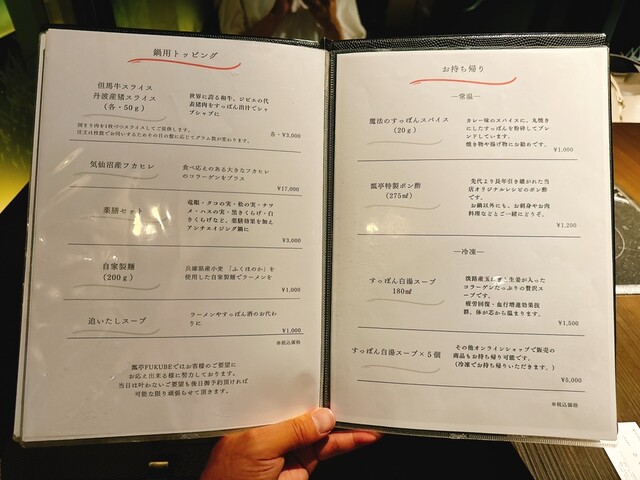 鍋用トッピング
但馬牛スライス
丹波産猪スライス
(各・50g)
世界に誇る和牛、ジビエの代
表猪肉をすっぽん出汁でシャ
ブシャブに
各・¥3,000
気仙沼産フカヒレ
食べ応えのある大きなフカヒレ
のコラーゲンをプラス
¥17,000
薬膳セット
竜眼・クコの実・松の実・ナツ
メ・ハスの実・黒きくらげ・白
きくらげなど、薬膳効果を加え
アンチエイジング鍋に
¥3,000
自家製麺
(200g)
兵庫県産小麦 「ふくほのか」を
使用した自家製麺でラーメンを
¥1,000
追いたしスープ
ラーメンやすっぽん酒のお代わ
りに
¥1,000
※税込価格
瓢亭FUKUBEではお客様のご要望に
お応え出来る様に努力しております。
当日は叶わないご要望も後日御予約頂ければ
可能な限り頑張らせて頂きます。
お持ち帰り
―常温―
魔法のすっぽんスパイス
(20g)
カレー味のスパイスに、丸焼き
にしたすっぽんを粉砕してブレ
ンドしています。
焼き物や揚げ物にお勧めです。
¥1,000
瓢亭特製ポン酢
(275㎖)
先代より長年引き継がれた当
店オリジナルレシピのポン酢
です。
お鍋以外にも、お刺身やお肉
料理などとご一緒にどうぞ。
¥1,200
―冷凍―
すっぽん白湯スープ
180㎖
淡路産玉ねぎと生姜が入った
コラーゲンたっぷりの贅沢ス
ープです。
疲労回復・血行増進効果抜
群、体が芯から温まります。
¥1,500
すっぽん白湯スープ×5個
その他オンラインショップで販売の
商品もお持ち帰り可能です。
(冷凍でお持ち帰りいただきます。)
¥5,000
※税込価格